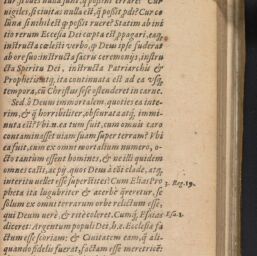 vigiles, si ciuitas nulla est, q̃ possit pdi? Cur co
lũna si nihil est q̃ possit ruere? Statim ab ini
tio rerum Ecclesia Dei cœpta est ppagari, eaq́;
instructa cœlesti verbo, q̃ Deus ipse fuderat
ab ore suo: instructa sacris ceremonijs, instru
cta Spiritu Dei, instructa Patriarchis &
Prophetis: atq́; ita continuata est ad ea vsq́;
tempora, cũ Christus sese ostenderet in carne.
Sed, ô Deum immortalem, quoties ea inte-
rim, & q̃ horribiliter, obscurata atq́; immi-
nuta est? Vbi.n. ea tum fuit, cum omnis caro
contaminasset viam suam super terram? Vbi
ea fuit, cum ex omni mortalium numero, o-
cto tantùm essent homines, & ne illi quidem
omnes casti, ac pij, quos Deus à cõi clade, atq́;
interitu vellet esse superstites? Cum Elias Pro
pheta ita lugubriter & acerbè q̃reretur, se 3. Reg. 19.
solum ex omni terrarum orbe relictum esse,
qui Deum verè, & ritè coleret. Cumq́; Esaias Esa. 1.
diceret: Argentum populi Dei, h.e. Ecclesiæ fa
ctum esse scoriam: & Ciuitatem eam, q̃ ali-
quando fidelis fuerat, factam esse meretricẽ: